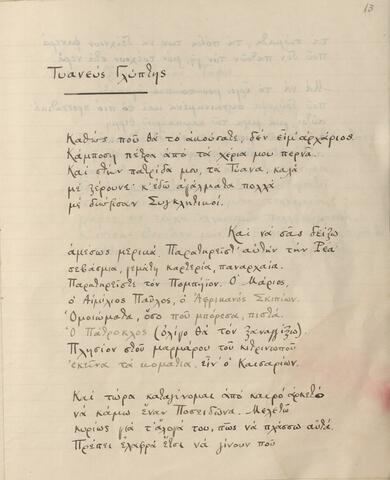 13
Τυανεὺς Γλύπτης
Καθὼς ποῦ θὰ τὸ ἀκούσατε, δὲν εἶμ' ἀρχάριος.
Κάμποση πέτρα ἀπὸ τὰ χέρια μου περνᾶ.
Καὶ στὴν πατρίδα μου, τὰ Τύανα, καλὰ
μὲ ξέρουνε· κ' ἐδῶ ἀγάλματα πολλὰ
μὲ διώρισαν Συγκλητικοί.
Καὶ νὰ σᾶς δείξω
ἀμέσως μερικά. Παρατηρεῖστ' αὐτὴν τὴν Ρέα
σεβάσμια, γεμάτη καρτερία, παναρχαία.
Παρατηρεῖστε τὸν Πομπήϊον. Ὁ Μάριος,
ὁ Αἰμίλιος Παῦλος, ὁ Ἀφρικανὸς Σκιπίων.
Ὁμοιώματα, ὅσο ποῦ μπόρεσα, πιστά.
Ὁ Πάτροκλος (ὀλίγο θὰ τὸν ξαναγγίξω).
Πλησίον στοῦ μαρμάρου τοῦ κιτρινωποῦ
ἐκεῖνα τὰ κομάτια, εἶν' ὁ Καισαρίων.
Καὶ τώρα καταγίνομαι ἀπὸ καιρὸ ἀρκετὸ
νὰ κάμω ἕναν Ποσειδῶνα. Μελετῶ
κυρίως γιὰ τ' ἄλογά του, πῶς νὰ πλάσσω αὐτά.
Πρέπει ἐλαφρὰ ἔτσι νὰ γίνουν ποῦ